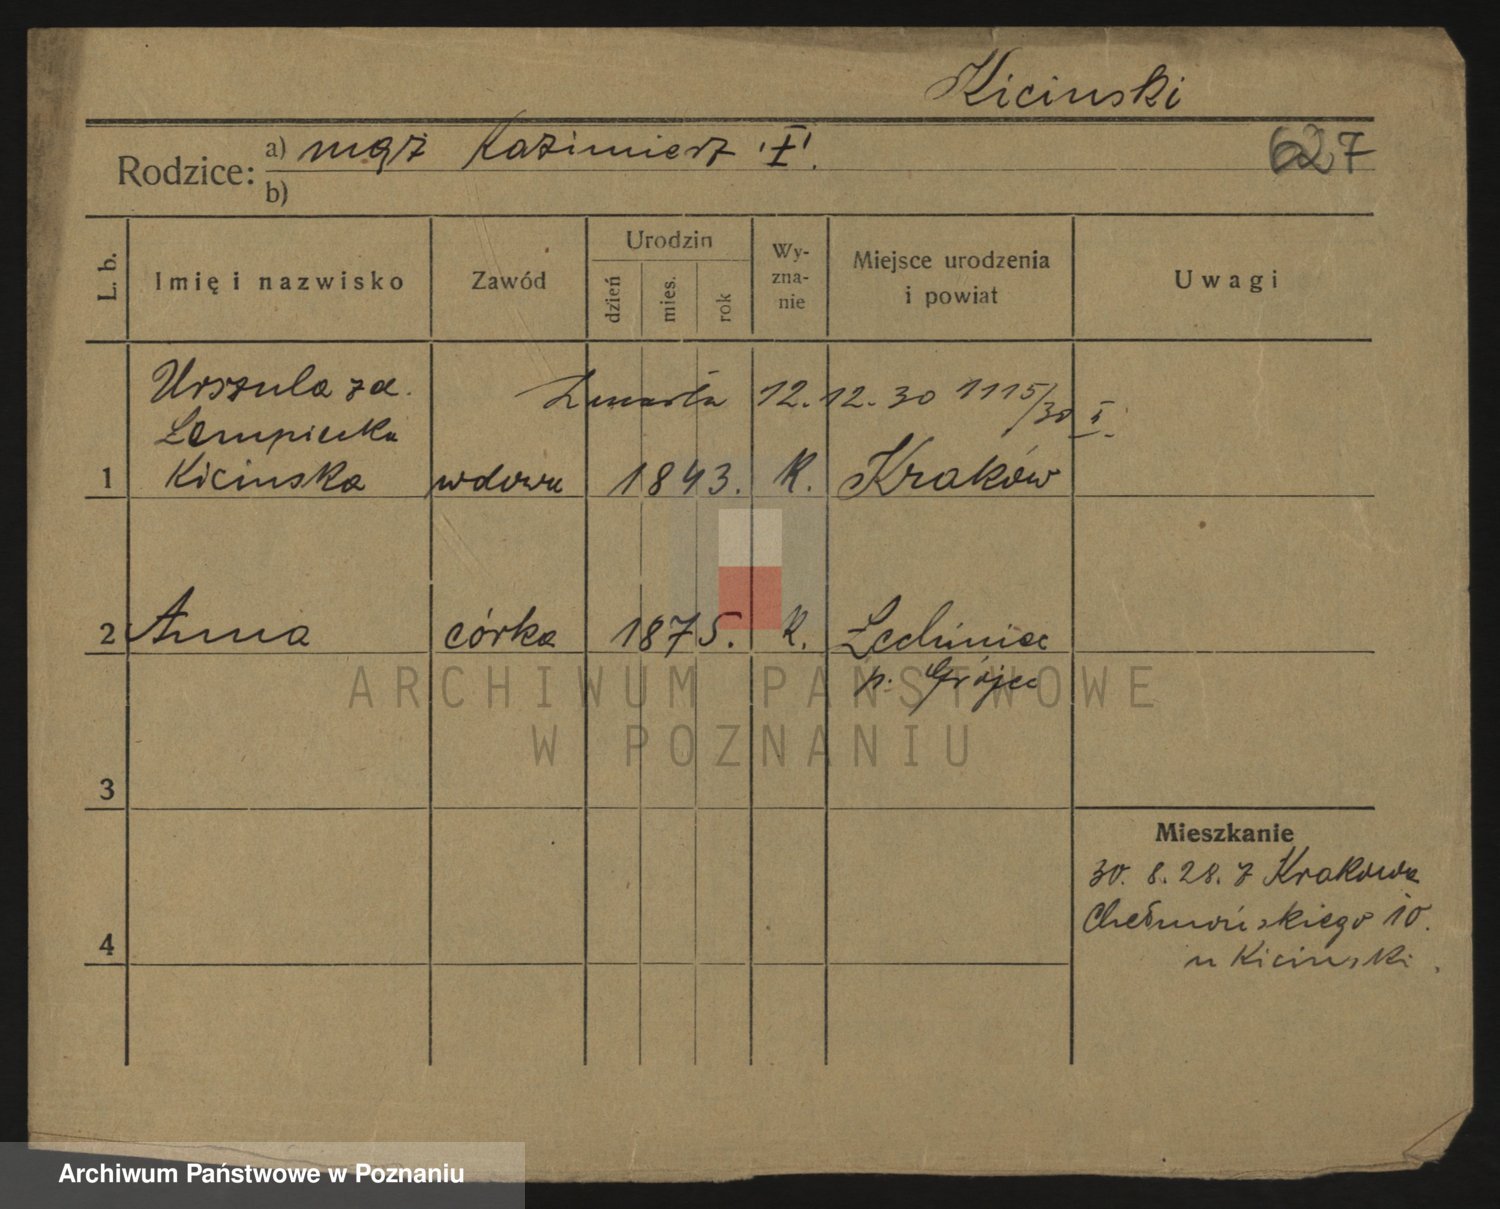 Kicinski
Rodzice: a) mąż Kazimierz 'I'. 627
b)
L. b.
Imię i nazwisko
Zawód
Urodzin
dzień
mies.
rok
Wy-
zna-
nie
Miejsce urodzenia
i powiat
Uwagi
Urszula za.
Zmarła 12.12.30 1115/30 I.
Łempicka
1 Kicinska wdowa 1843. K. Kraków
2 Anna córka 1875. K.
p. Grójec
ARCHIWUM PAŃSTWOWE
W POZNANIU
3
Mieszkanie
30. 8. 28. z Krakowa
Chełmońskiego 10.
4
u Kicinski.
Archiwum Państwowe w Poznaniu